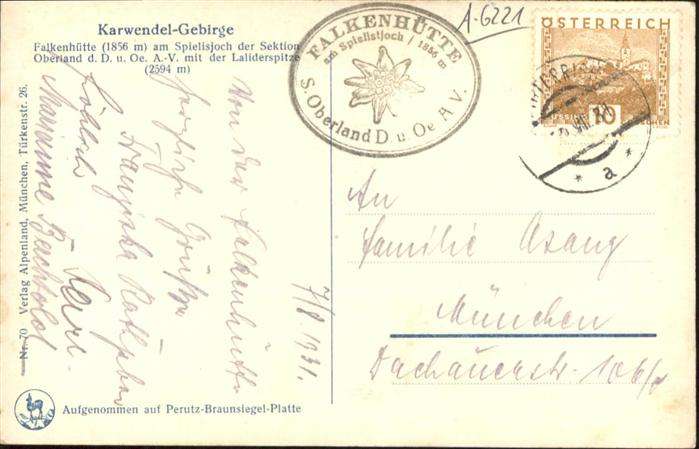 Karwendel-Gebirge
Falkenhütte (1856 m) am Spielisjoch der Sektion
Oberland d. D. u. Oe. A.-V. mit der Laliderspitze
(2594 m)
FALKENHÜTTE
am Spielistjoch / 1856 m
S. Oberland D. u Oe A.V.
A-6221
ÖSTERREICH
10
a
7/8 1931.
Von der Falkenhütte
herzliche Grüße
Franziska
Karl
Marianne Bechtold
An
Familie Asang
München
Dachauerstr. 106/
Nr. 70 Verlag Alpenland, München, Türkenstr. 26.
Aufgenommen auf Perutz-Braunsiegel-Platte